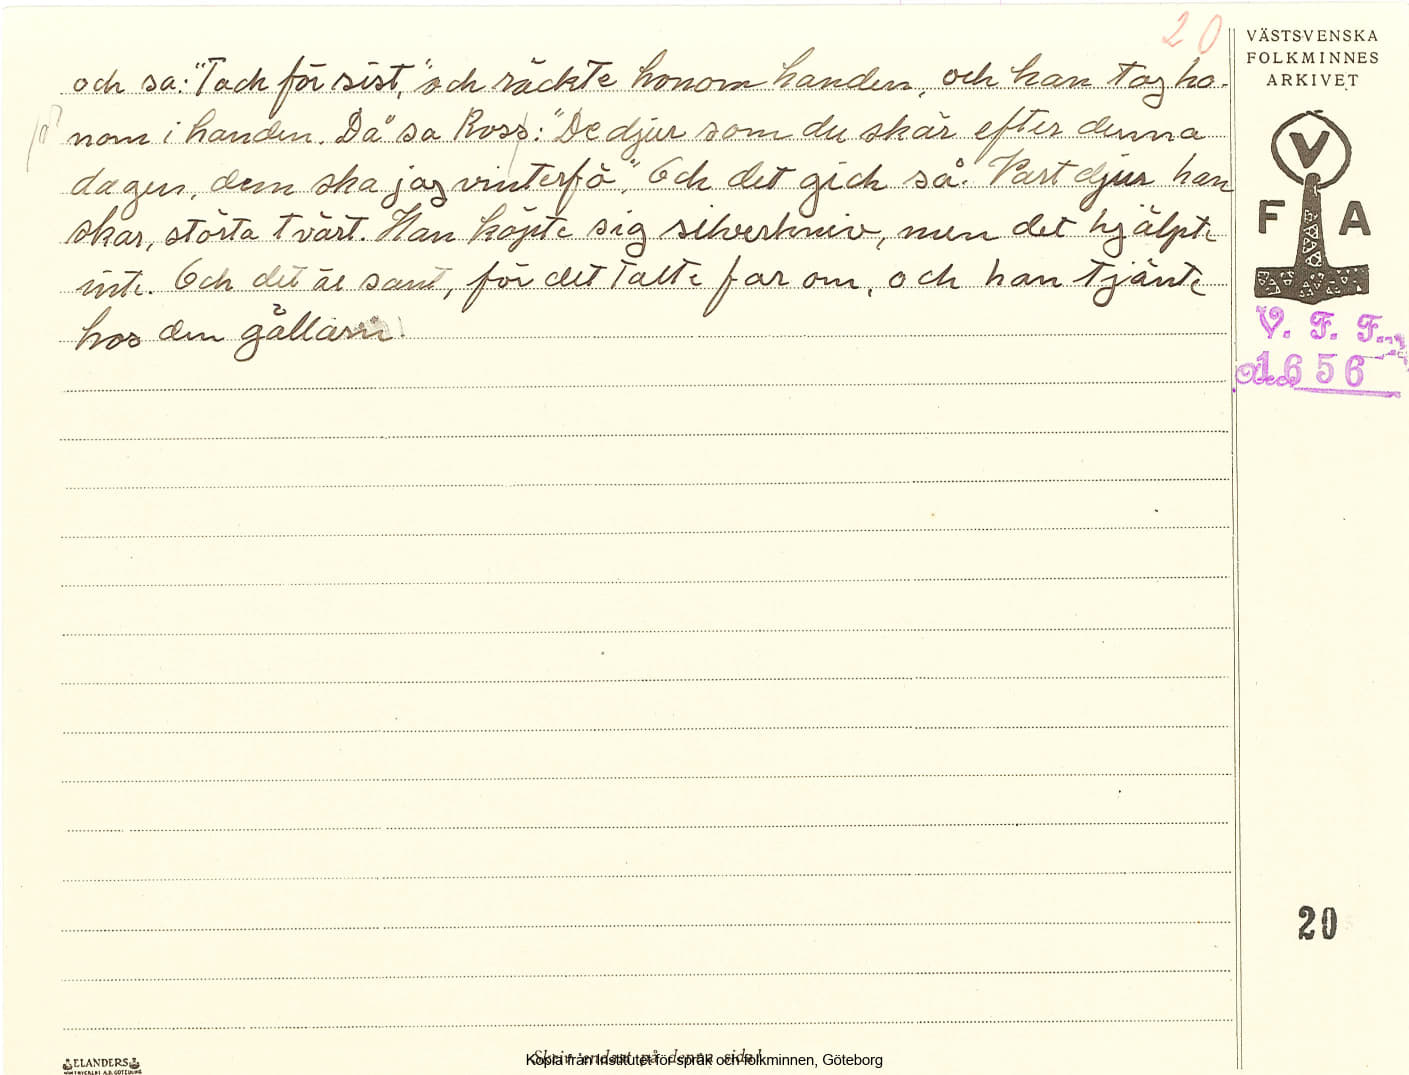 20
VÄSTSVENSKA
FOLKMINNES
ARKIVET
och sa: "Tack för sist," och räckte honom handen, och han tog ho-
nom i handen. Då sa Ross: "De djur som du skär efter denna
dagen, dem ska jag vinterfö". Och det gick så. Vart djur han
skar, störta tvärt. Han köpte sig silverkniv, men det hjälpte
inte. Och det är sant, för det talte far om, och han tjänte
hos den gällarn.
V
F A
V. F. F.
1656
20
Skriv endast på denna sida!
Kopia från Institutet för språk och folkminnen, Göteborg
ELANDERS